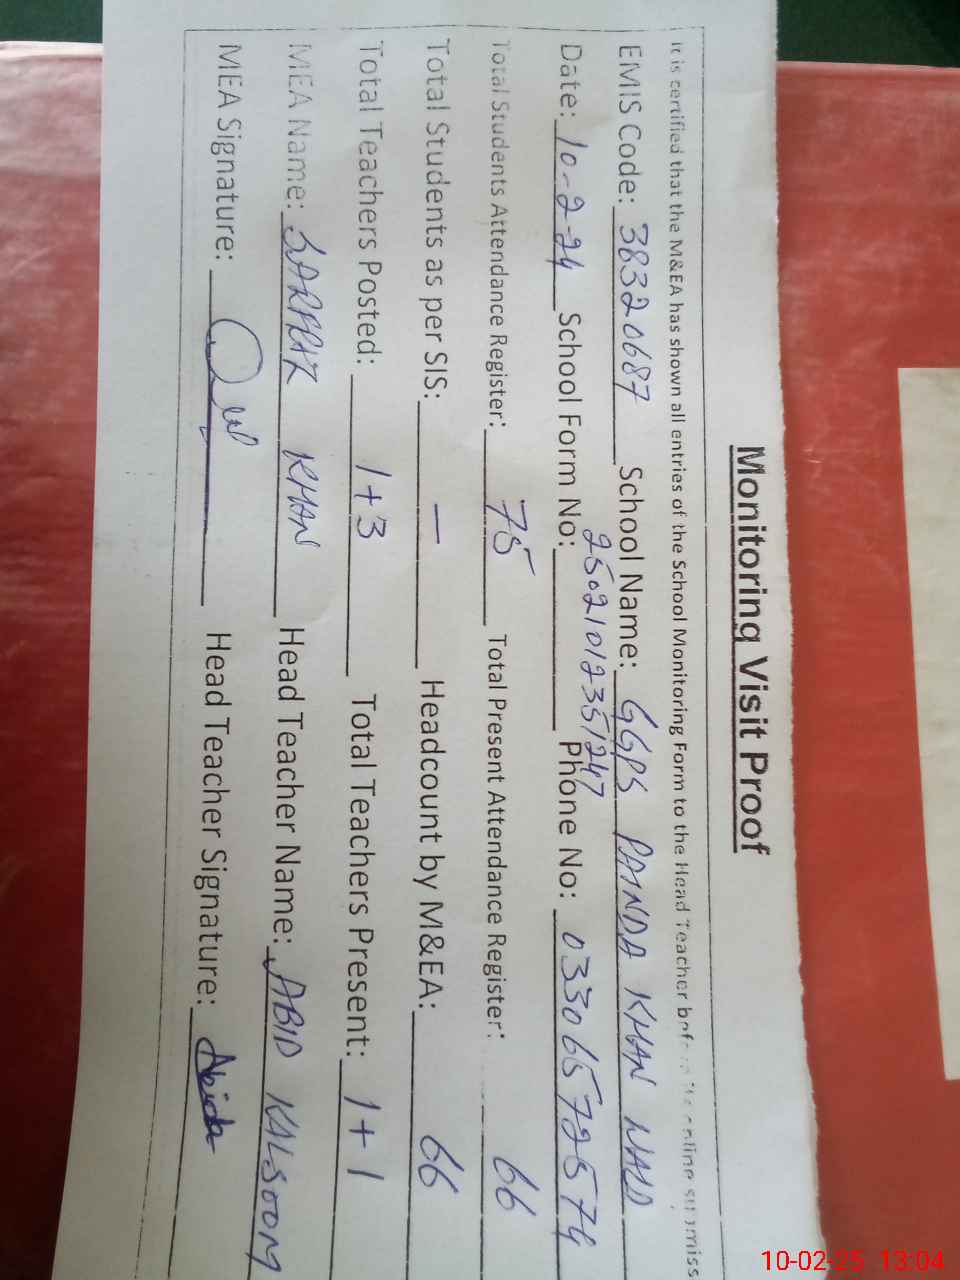 Monitoring Visit Proof
It is certified that the M&EA has shown all entries of the School Monitoring Form to the Head Teacher before the online submiss
EMIS Code: 38320687 School Name: GGPS PANDA KHAN WALA
Date: 10-2-24 School Form No: 25021012351247 Phone No: 03306572574
Total Students Attendance Register: 75 Total Present Attendance Register: 66
Total Students as per SIS: — Headcount by M&EA: 66
Total Teachers Posted: 1+3 Total Teachers Present: 1+1
MEA Name: SARFRAZ KHAN Head Teacher Name: ABID KALSOOM
MEA Signature: Head Teacher Signature: Abida
10-02-25 13:04